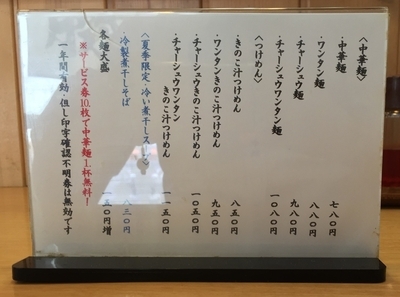 〈中華麺〉
・中華麺 七八〇円
・ワンタン麺 八八〇円
・チャーシュウ麺 九八〇円
・チャーシュウワンタン麺 一〇八〇円
〈つけめん〉
・きのこ汁つけめん 八五〇円
・ワンタンきのこ汁つけめん 九五〇円
・チャーシュウきのこ汁つけめん 一〇五〇円
・チャーシュウワンタン
きのこ汁つけめん 一一五〇円
〈夏季限定・冷い煮干しスープ〉
冷製煮干しそば 八三〇円
各麺大盛 五〇円増
※サービス券10枚で中華麺1杯無料!
一年間有効・但し印字確認不明券は無効です